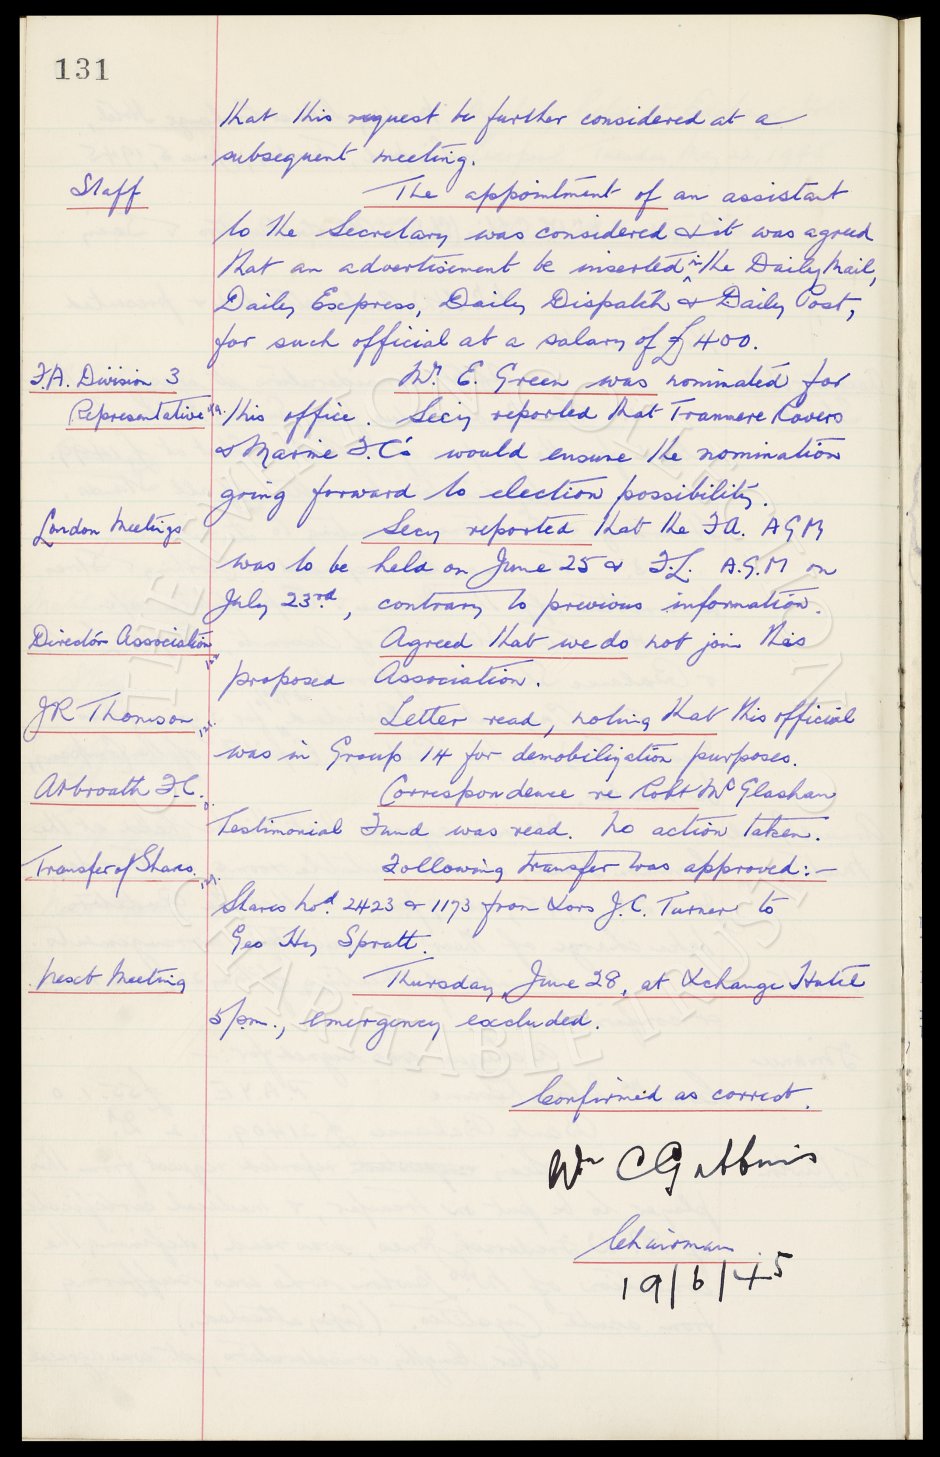 131
that this request be further considered at a
subsequent meeting.
Staff The appointment of an assistant
to the Secretary was considered & it was agreed
that an advertisement be inserted in the Daily Mail,
Daily Express, Daily Dispatch & Daily Post,
for such official at a salary of £400.
F.A. Division 3 Mr. E. Green was nominated for
Representative this office. Secy reported that Tranmere Rovers
& Marine F.C's would ensure the nomination
going forward to election possibility.
London Meetings Secy reported that the F.A. A G M
was to be held on June 25 & F.L. A.G.M on
July 23rd, contrary to previous information.
Directors Association Agreed that we do not join this
proposed Association.
JR Thomson Letter read, noting that this official
was in Group 14 for demobilization purposes.
Arbroath F.C. Correspondence re Robt McGlashan
Testimonial Fund was read. No action taken.
Transfer of Shares Following transfer was approved:-
Shares Nod. 2423 & 1173 from Exors J.C. Turner to
Geo Hy Spratt.
Next Meeting Thursday, June 28, at Exchange Hotel
5pm., emergency excluded.
Confirmed as correct.
Wm C Gibbins
Chairman
19/6/45
THE EVERTON COLLECTION
CHARITABLE TRUST